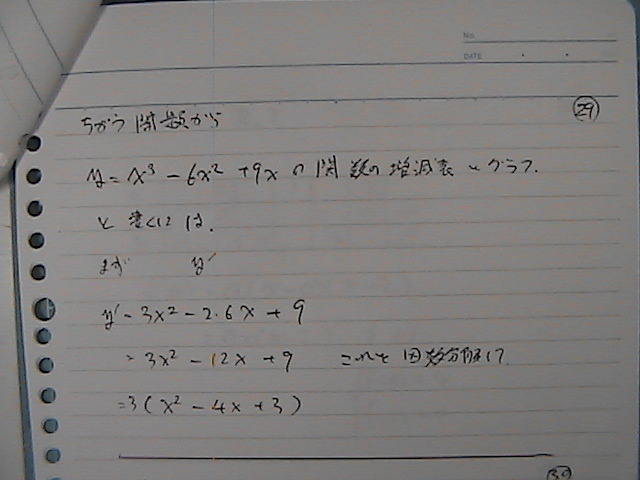 No.
DATE
29
ちがう関数から
y = x³ - 6x² + 9x の関数の増減表とグラフ.
と書くには.
まず y'
y' = 3x² - 2·6x + 9
= 3x² - 12x + 9 これを因数分解して
= 3(x² - 4x + 3)